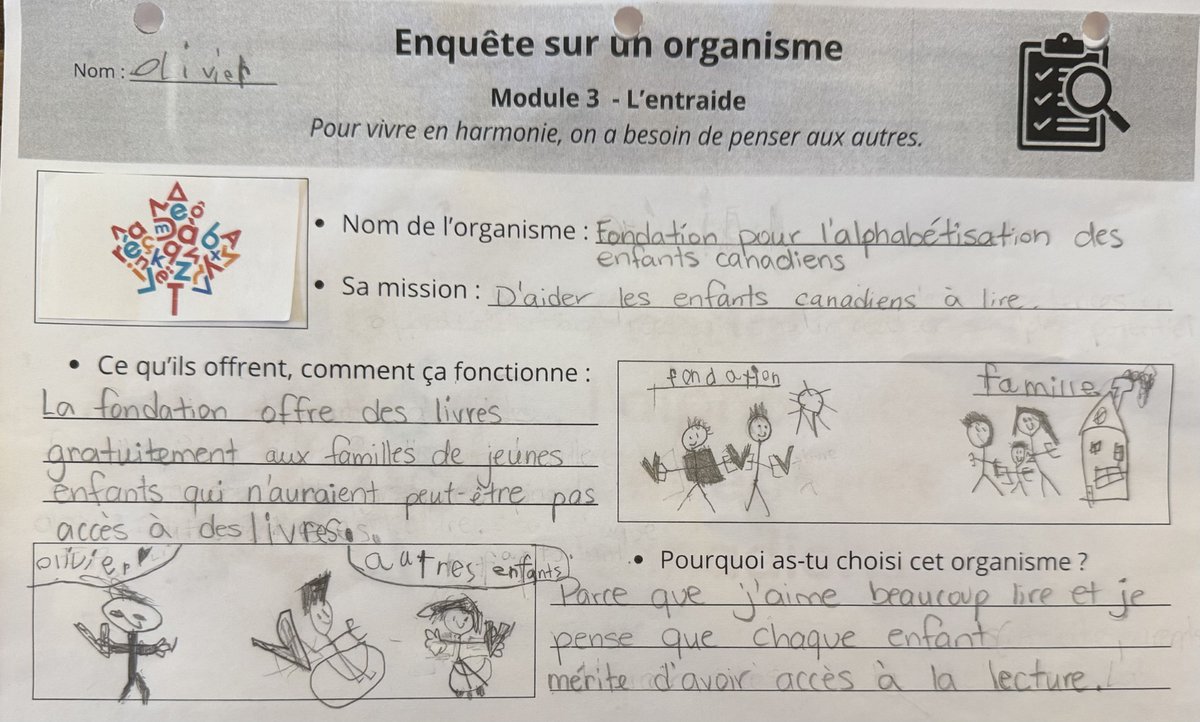 Enquête sur un organisme
Nom : Olivier
Module 3 - L'entraide
Pour vivre en harmonie, on a besoin de penser aux autres.
• Nom de l'organisme : Fondation pour l'alphabétisation des
enfants canadiens
• Sa mission : D'aider les enfants canadiens à lire.
• Ce qu'ils offrent, comment ça fonctionne :
La fondation offre des livres
gratuitement aux familles de jeunes
enfants qui n'auraient peut-être pas
accès à des livres.
fondation
famille
olivier
autres enfants
• Pourquoi as-tu choisi cet organisme ?
Parce que j'aime beaucoup lire et je
pense que chaque enfant
mérite d'avoir accès à la lecture.